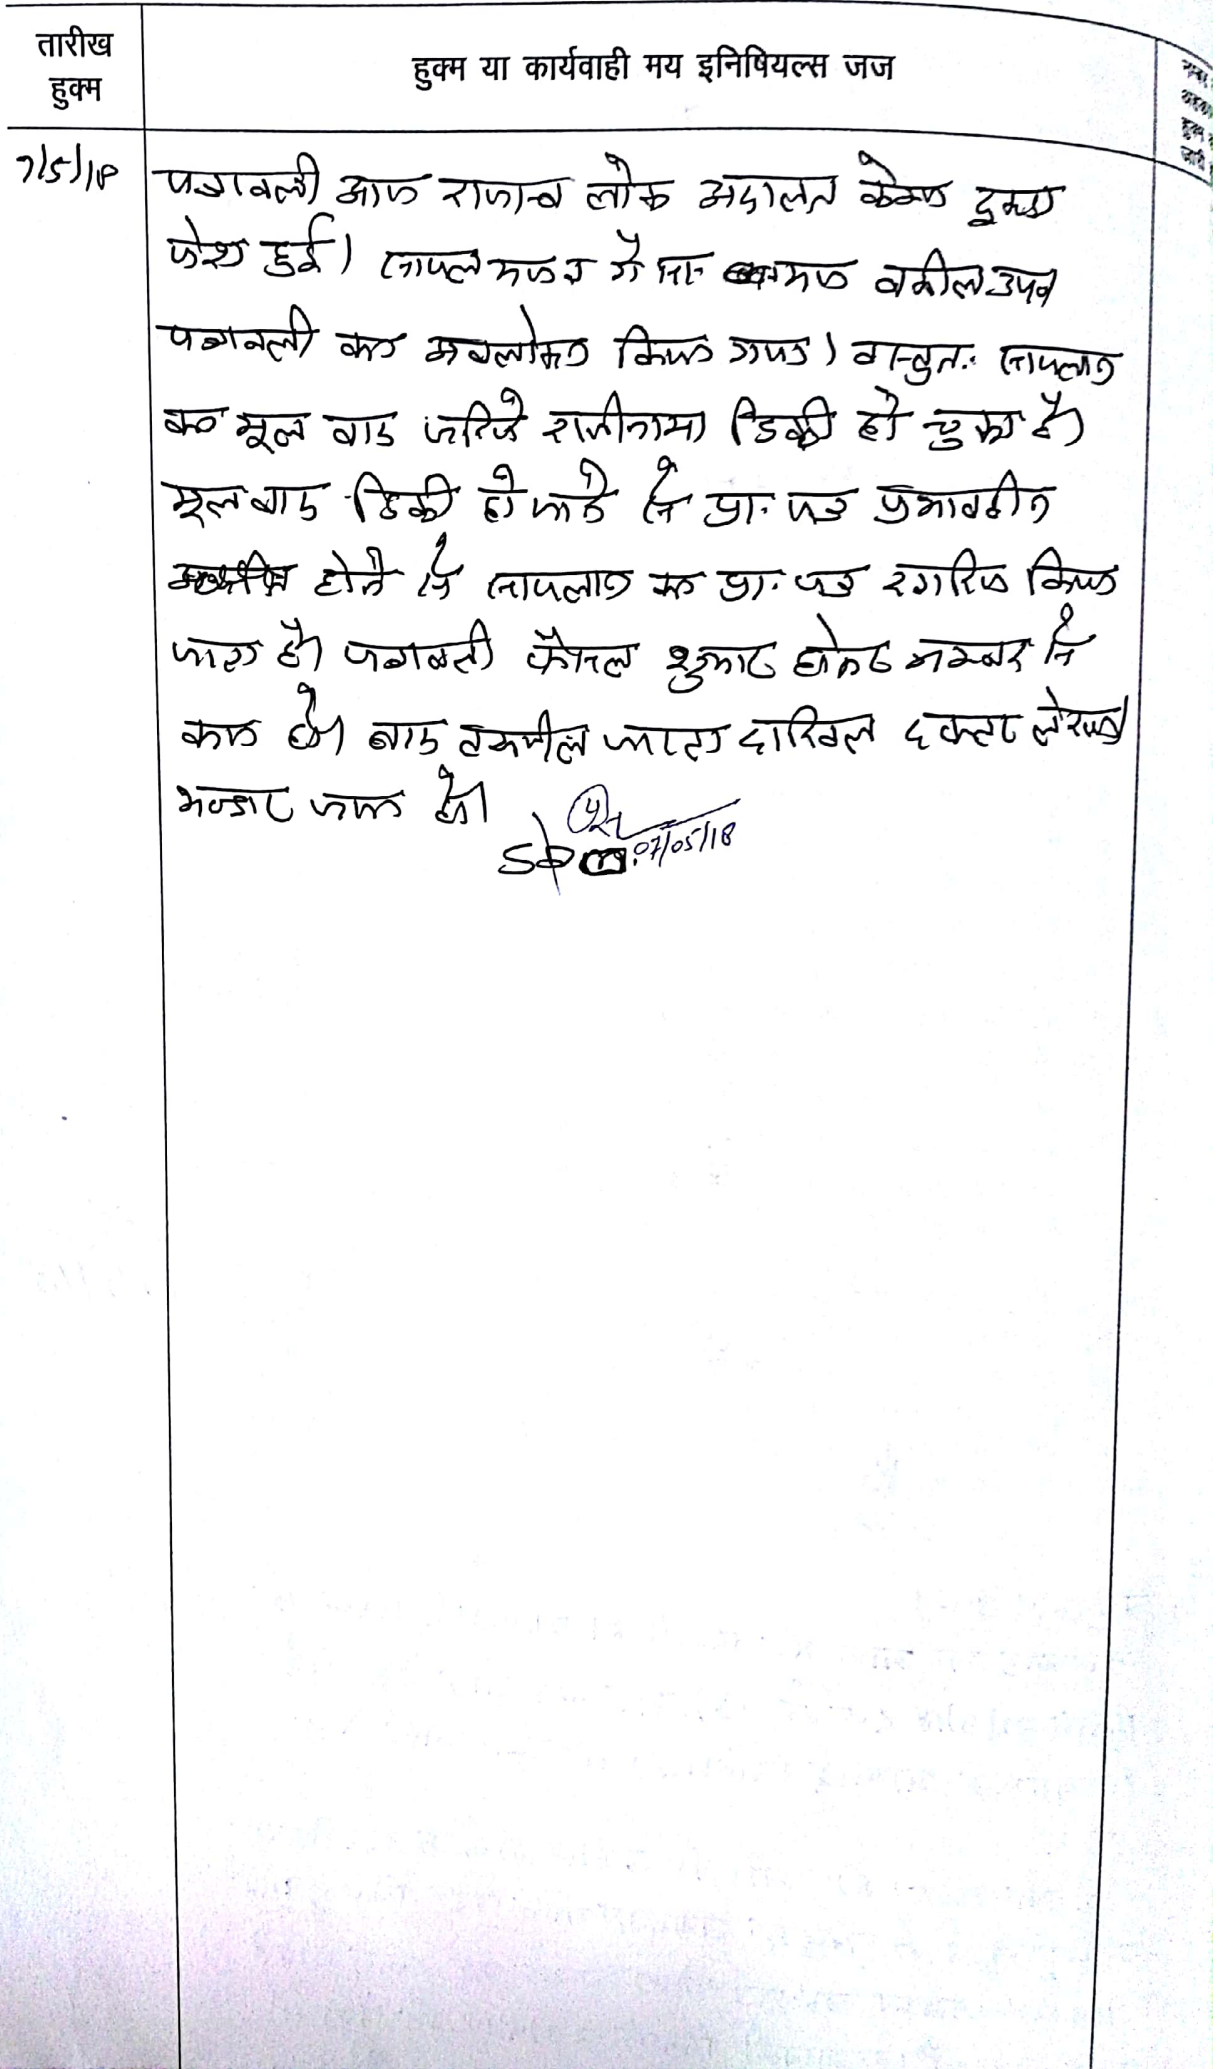 तारीख
हुक्म
हुक्म या कार्यवाही मय इनिषियल्स जज
हुक्म
जारी
7/5/18
पत्रावली आज राजस्व लोक अदालत केम्प
पेश हुई। वकील उप०
पत्रावली का अवलोकन किया गया। वस्तुतः सायलान
का मूल वाद जरिये राजीनामा डिक्री हो चुका है।
मूल वाद डिक्री हो जाने से प्रा. पत्र प्रभावहीन
होने से सायलान का प्रा. पत्र खारिज किया
जाता है। पत्रावली फैसल शुमार होकर नम्बर से
कम हो। बाद तकमील जाप्ता दाखिल दफ्तर लेखा
भण्डार जमा हो।
07/05/18